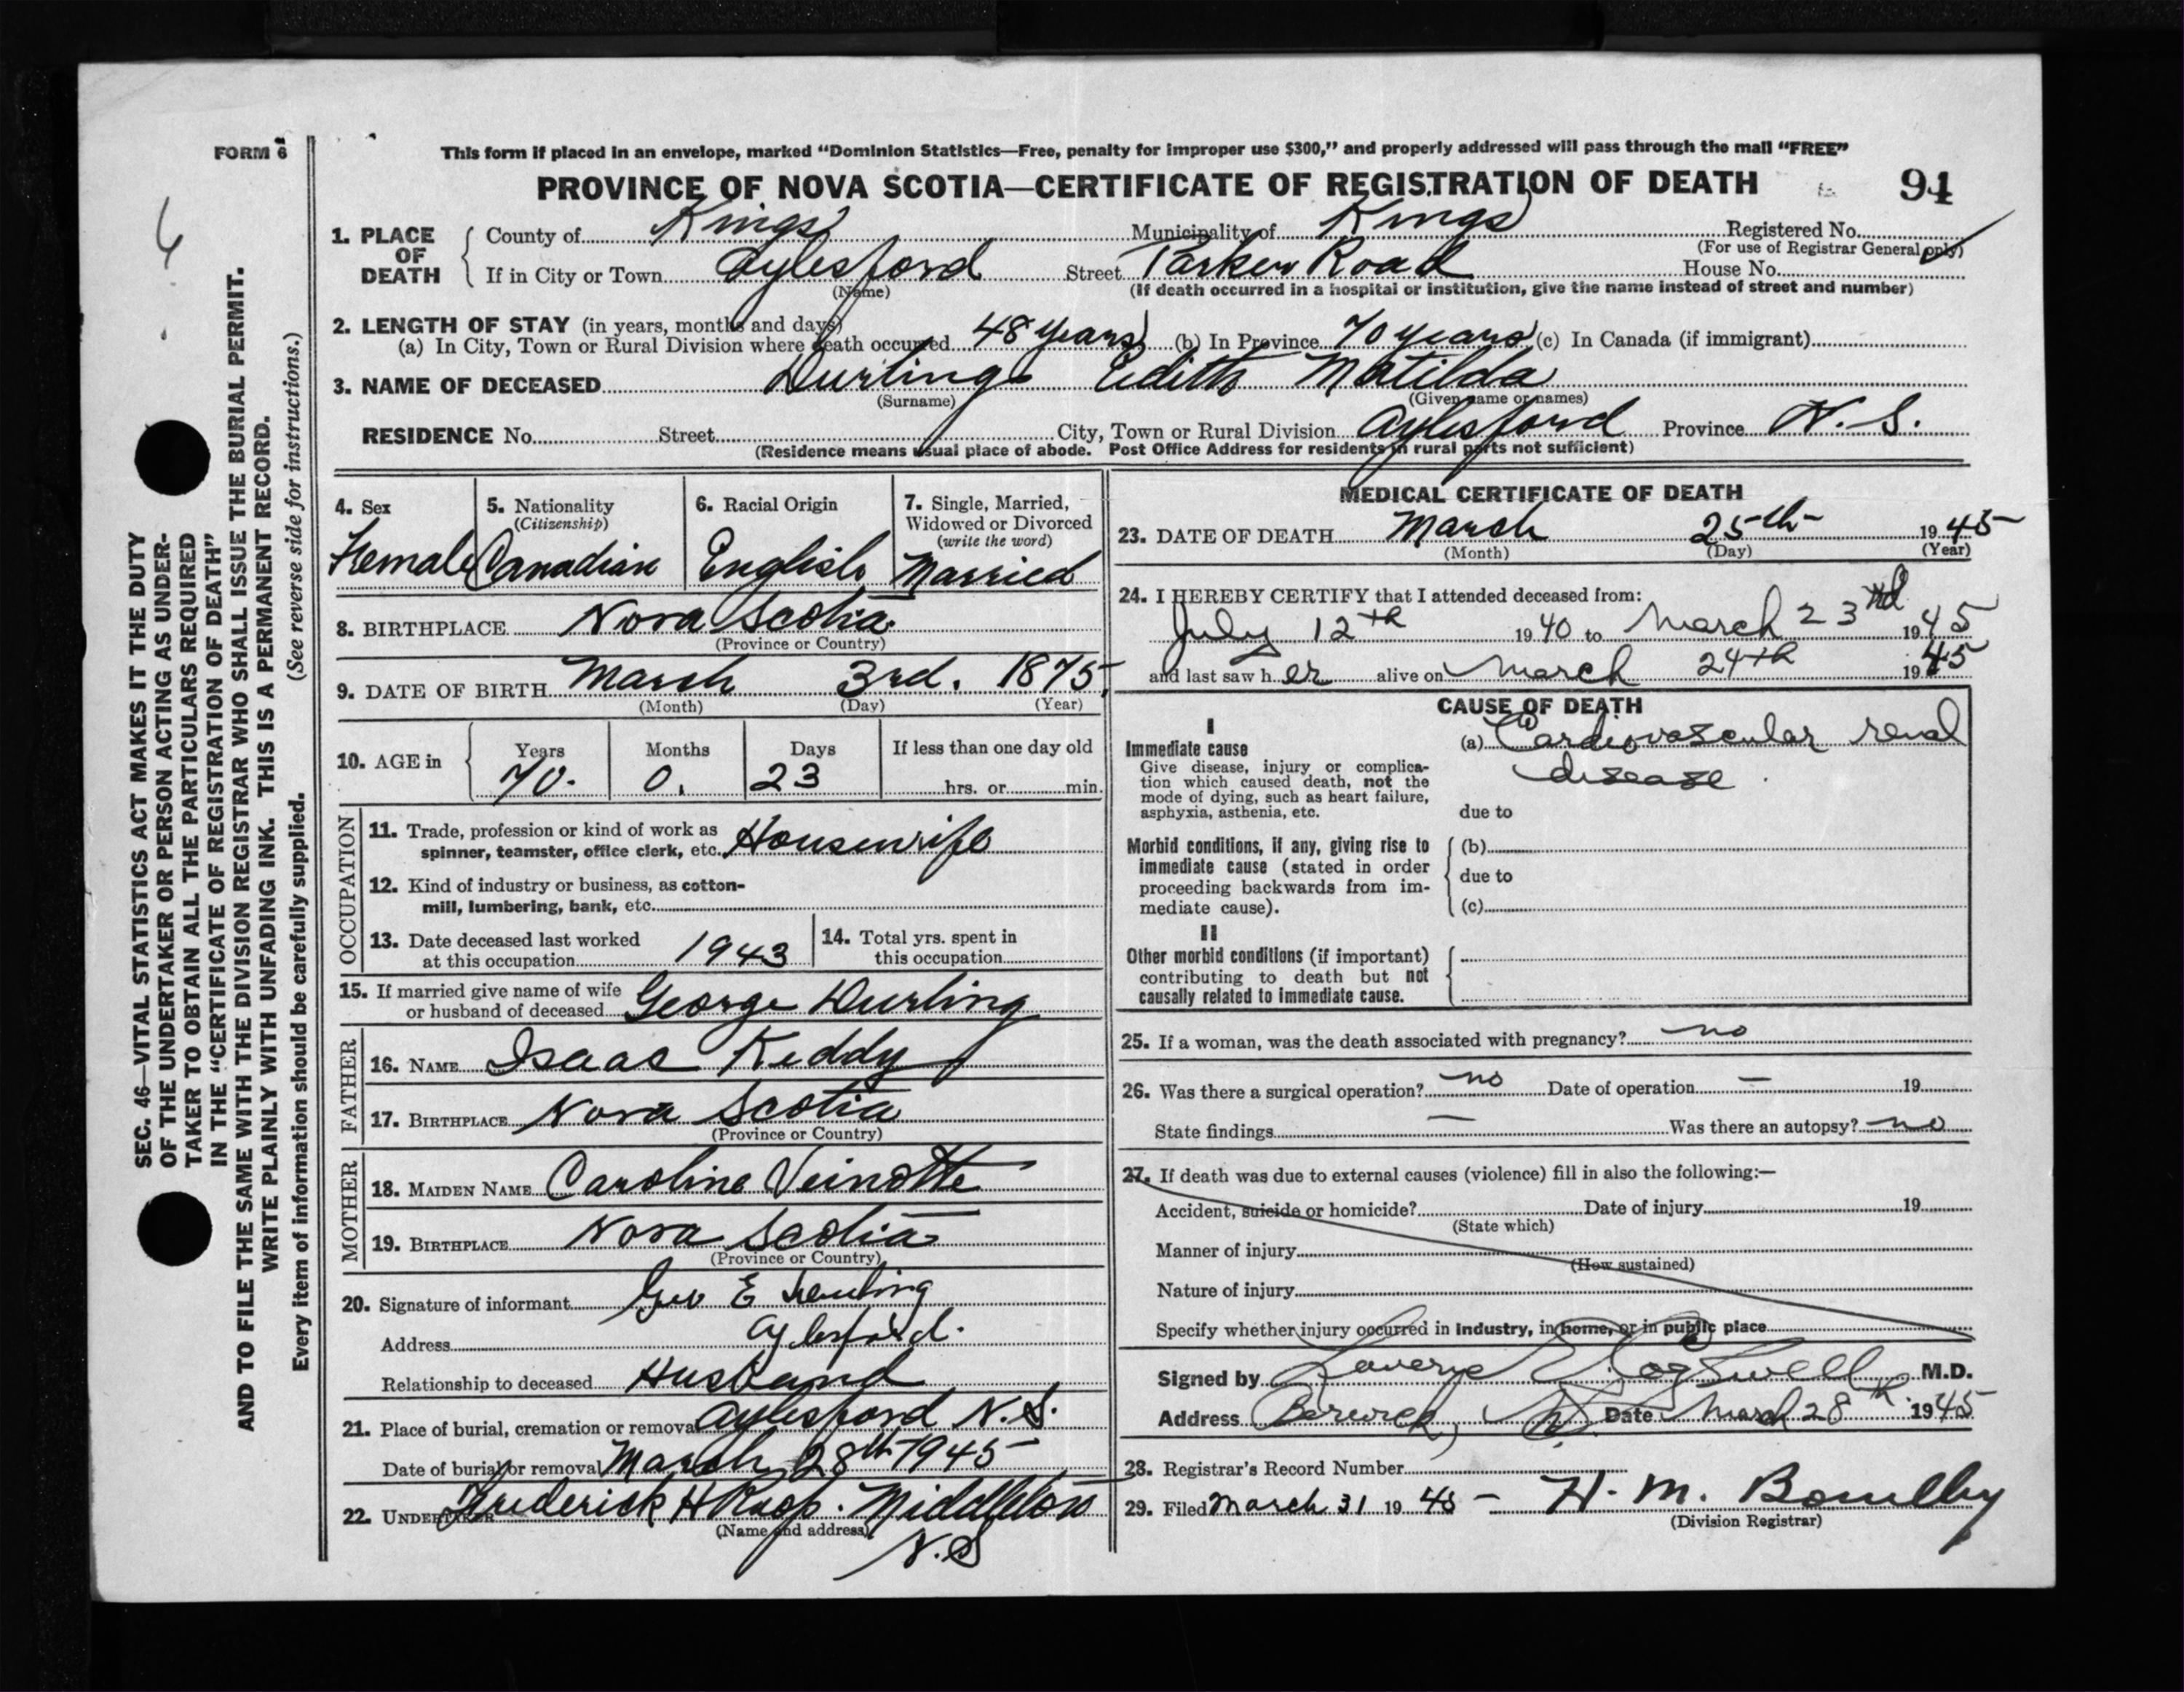 FORM 6
This form if placed in an envelope, marked "Dominion Statistics—Free, penalty for improper use $300," and properly addressed will pass through the mail "FREE"
PROVINCE OF NOVA SCOTIA—CERTIFICATE OF REGISTRATION OF DEATH 94
1. PLACE OF DEATH
County of Kings Municipality of Kings Registered No.
(For use of Registrar General only)
If in City or Town Aylesford Street Parker Road House No.
(Name) (If death occurred in a hospital or institution, give the name instead of street and number)
2. LENGTH OF STAY (in years, months and days)
(a) In City, Town or Rural Division where death occurred 48 years (b) In Province 70 years (c) In Canada (if immigrant)
3. NAME OF DECEASED Durling Edith Matilda
(Surname) (Given name or names)
RESIDENCE No. Street City, Town or Rural Division Aylesford Province N.S.
(Residence means usual place of abode. Post Office Address for residents in rural parts not sufficient)
4. Sex Female
5. Nationality (Citizenship) Canadian
6. Racial Origin English
7. Single, Married, Widowed or Divorced (write the word) Married
8. BIRTHPLACE Nova Scotia
(Province or Country)
9. DATE OF BIRTH March 3rd. 1875
(Month) (Day) (Year)
10. AGE in Years 70. Months 0. Days 23 If less than one day old hrs. or min.
OCCUPATION
11. Trade, profession or kind of work as spinner, teamster, office clerk, etc. Housewife
12. Kind of industry or business, as cotton-
mill, lumbering, bank, etc.
13. Date deceased last worked at this occupation 1943
14. Total yrs. spent in this occupation
15. If married give name of wife or husband of deceased George Durling
FATHER
16. NAME Isaac Keddy
17. BIRTHPLACE Nova Scotia
(Province or Country)
MOTHER
18. MAIDEN NAME Caroline Veinotte
19. BIRTHPLACE Nova Scotia
(Province or Country)
20. Signature of informant Geo E Durling
Address Aylesford.
Relationship to deceased Husband
21. Place of burial, cremation or removal Aylesford N.S.
Date of burial or removal March 28th 1945
22. UNDERTAKER Frederick H Roop. Middleton
(Name and address)
N.S
MEDICAL CERTIFICATE OF DEATH
23. DATE OF DEATH March 25th 1945
(Month) (Day) (Year)
24. I HEREBY CERTIFY that I attended deceased from:
July 12th 1940 to March 23rd 1945
and last saw her alive on March 24th 1945
CAUSE OF DEATH
I
Immediate cause
Give disease, injury or complica-
tion which caused death, not the
mode of dying, such as heart failure,
asphyxia, asthenia, etc.
(a) Cardiovascular renal
disease.
due to
Morbid conditions, if any, giving rise to
immediate cause (stated in order
proceeding backwards from im-
mediate cause).
(b)
due to
(c)
II
Other morbid conditions (if important)
contributing to death but not
causally related to immediate cause.
25. If a woman, was the death associated with pregnancy? no
26. Was there a surgical operation? no Date of operation — 19
State findings — Was there an autopsy? no
27. If death was due to external causes (violence) fill in also the following:—
Accident, suicide or homicide? Date of injury 19
(State which)
Manner of injury
(How sustained)
Nature of injury
Specify whether injury occurred in industry, in home, or in public place
Signed by Cogswell M.D.
Address Berwick, Date March 28th 1945
28. Registrar's Record Number
29. Filed March 31 1945 — H. M.
(Division Registrar)
SEC. 46—VITAL STATISTICS ACT MAKES IT THE DUTY
OF THE UNDERTAKER OR PERSON ACTING AS UNDER-
TAKER TO OBTAIN ALL THE PARTICULARS REQUIRED
IN THE "CERTIFICATE OF REGISTRATION OF DEATH"
AND TO FILE THE SAME WITH THE DIVISION REGISTRAR WHO SHALL ISSUE THE BURIAL PERMIT.
WRITE PLAINLY WITH UNFADING INK. THIS IS A PERMANENT RECORD.
Every item of information should be carefully supplied. (See reverse side for instructions.)